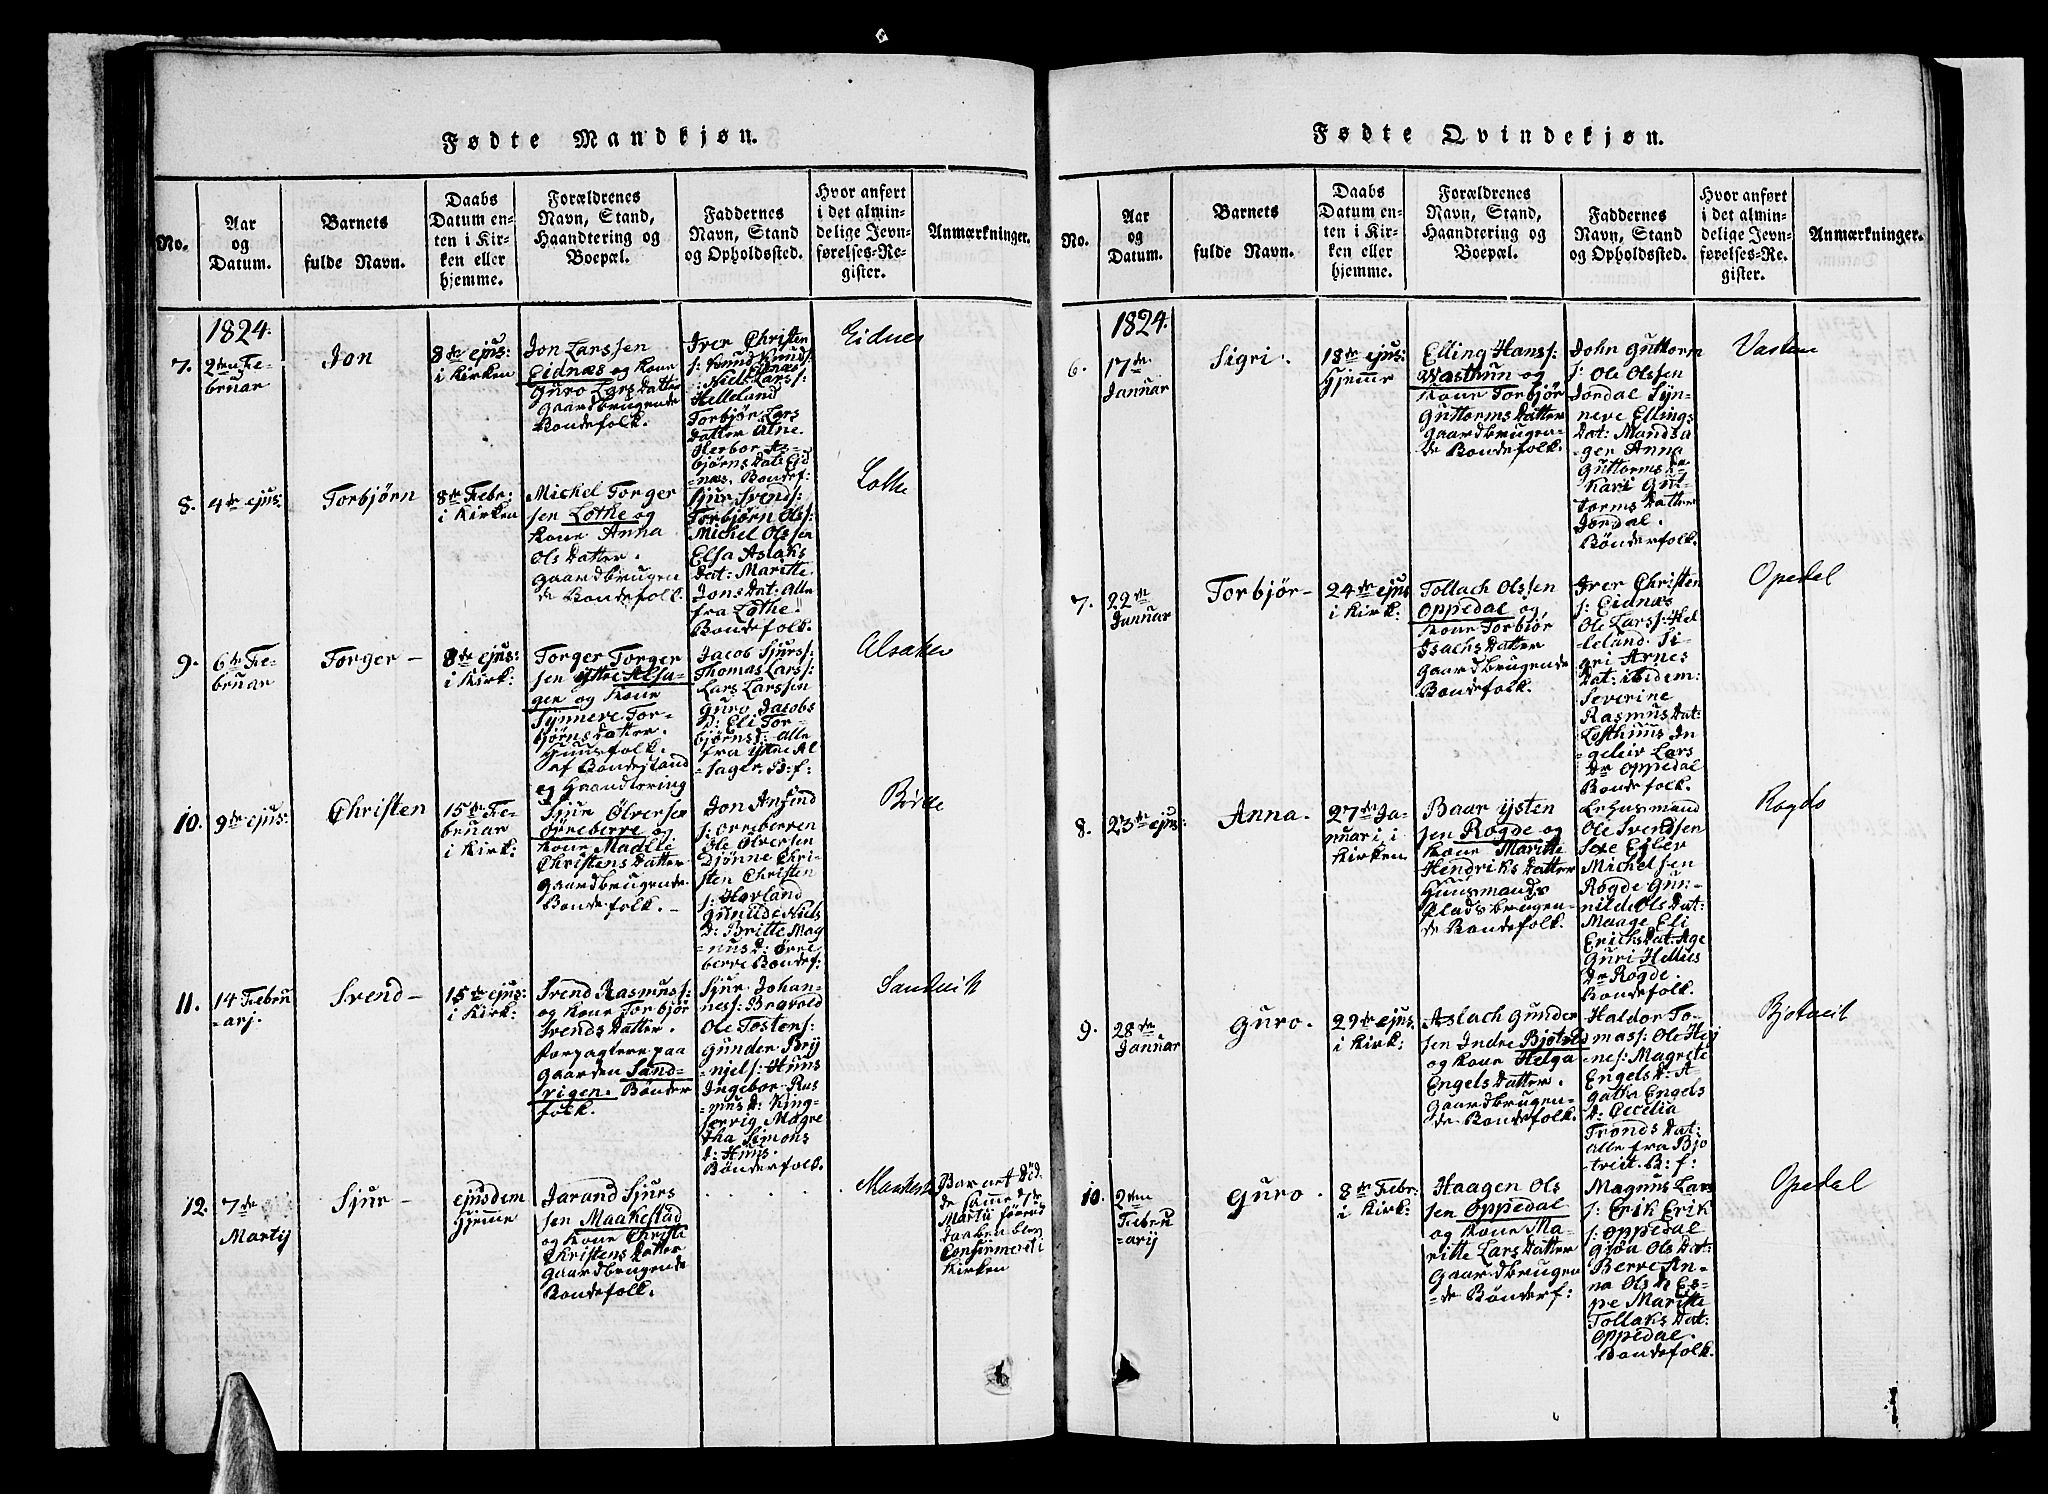 Fødte Mandkjøn.
No.
Aar
og
Datum.
Barnets
fulde Navn.
Daabs
Datum en-
ten i Kir-
ken eller
hjemme.
Forældrenes
Navn, Stand,
Haandtering og
Boepæl.
Faddernes
Navn, Stand
og Opholdssted.
Hvor anført
i det almin-
delige Jevn-
førelses-Re-
gister.
Anmærkninger.
1824.
7.
2den Fe-
bruar
Jon
8de ejus:
i Kirken
Jon Larssen
Eidnæs og Kone
Guro Lars Datter
Gaardbrugende
Bondefolk.
Iver Christen
s: Knud Knuds:
Niels Lars:
Helleland
Torbjør Lars
Datter Alne.
Herbor As-
bjørns Dat: Eid
næs. Bondef:
Eidnes
8.
4de ejus:
Torbjørn
8de Febr:
i Kirken
Michel Torger
sen Lothe og
Kone Anna
Ols Datter.
Gaardbrugen
de Bondefolk.
Sjur Svends:
Torbjørn Ols:
Michel Olssen
Elsa Aslaks
Dat: Maritte
Jons Dat: Alle
fra Lothe.
Bondefolk.
Lothe
9.
6te Fe-
bruar
Torger –
8de ejus:
i Kirk:
Torger Torger
sen ytre Alsa-
ger og Kone
Synneve Tor-
bjørns datter.
Huusfolk.
af Bondestand
og Haandtering
Jacob Sjurs:
Thomas Lars:
Lars Larssen
Guro Jacobs
D: Eli Tor-
bjørnsd: alle
fra ytre Al
-sager. B: f:
Alsaker
10.
9de ejus:
Christen
15de Fe-
bruar
i Kirk:
Sjur Ølversen
Ørreberre og
Kone Madeli
Christens Datter
Gaardbrugende
Bondefolk. –
Jon Anfind
s: ørreberren
Ole Olversen
Djønne Chri-
sten Christen
s: Hovland
Gunilde Niels
D: Britte Mag
-nus D: Ørre-
berre Bondef:
11.
14 Febru
-arj.
Svend –
15de ejus:
i Kirk:
Svend Rasmuss:
og Kone Torbjør
Svends Datter.
Forpagtere paa
Gaarden Sand-
vigen. Bønder
folk.
Sjur Johan-
nes: Bagvold
Ole Tostens:
Gunder Bry
-njels: Huus
Ingebor Ras
-mus D: King-
servig Magre
tha Simons
D: Huus.
Bønderfolk.
Sandvik
12.
7de
Martij
Sjur –
ejusdem
Hjemme
Jarand Sjurs
sen Maakestad
og Kone Christi
Christens Datter
Gaardbrugende
Bondefolk.
Barnet Död
de samme 7de
Martii førend
Daaben blev
Confirmert i
Kirken
Fødte Qvindekjøn.
No.
Aar
og
Datum.
Barnets
fulde Navn.
Daabs
Datum en-
ten i Kir-
ken eller
hjemme.
Forældrenes
Navn, Stand,
Haandtering og
Boepæl.
Faddernes
Navn, Stand
og Opholdssted.
Hvor anført
i det almin-
delige Jevn-
førelses-Re-
gister.
Anmærkninger.
1824.
6.
17de
Januar
Sigri.
18de ejus:
Hjemme
Elling Hanss:
Wasthun og
Kone Torbjør
Guttorms Datter
Gaardbrugen-
de Bondefolk.
John Guttorm
s: Ole Olssen
Jordal Syn-
neve Ellings
Dat: Mandsa
ger Anna
Guttorms Dr
Kari Gut-
torms Datter
Jordal.
Bønderfolk.
7.
22de
Januar
Torbjør –
24de ejus
i Kirk:
Tollach Olssen
Oppedal og,
Kone Torbiør
Isachs Datter
Gaardbrugende
Bondefolk.
Iver Christen
s: Eidnæs
Ole Larss: Hel
leland. Si-
gri Arnes
Dat: ibidem:
Severine
Rasmus Dat:
Lofthuus In
-geleiv Lars
Dr Oppedal
Bondefolk.
Opedal
8.
23de ejus:
Anna.
27de Ja-
nuar i
Kirken
Baar ysten
sen Rogde og
Kone Maritte
Hendriks Datter
Huusmands
Pladsbrugen-
de Bondefolk.
Ole Svendsen
Michelsen
Rogde Gun-
nilde Ols Dat:
Maage Eli
Erichs Dat: Age
Guri Helljes
Dr Rogde.
Bondefolk.
9.
28de
Januar
Guro.
29de ejus.
i Kirk:
Aslach Gunder
sen Indre Bjotvedt
og Kone Helga
Engels Datter.
Gaardbrugen-
de Bondefolk.
Haldor To-
mas: Ole Hel
-nes: Magrete
Engels D: A-
gatha Engels
D: Cecelia
Tronds Dat:
alle fra Bjo
tveit. B: f:
Bjotveit
10.
2den
Febru
-arij
Guro.
8de Febr:
i Kirk:
Haagen Ols
sen Oppedal
og Kone Ma-
ritte Lars Datter
Gaardbrugen
-de Bønderf:
Magnus Lars
s: Erik Erik
s: Oppedal
Gjøa Ols Dat:
Berre An-
na Ols Dr Es-
pe Maritte
Tollaks Dat:
Oppedal.
Bondefolk.
Opedal